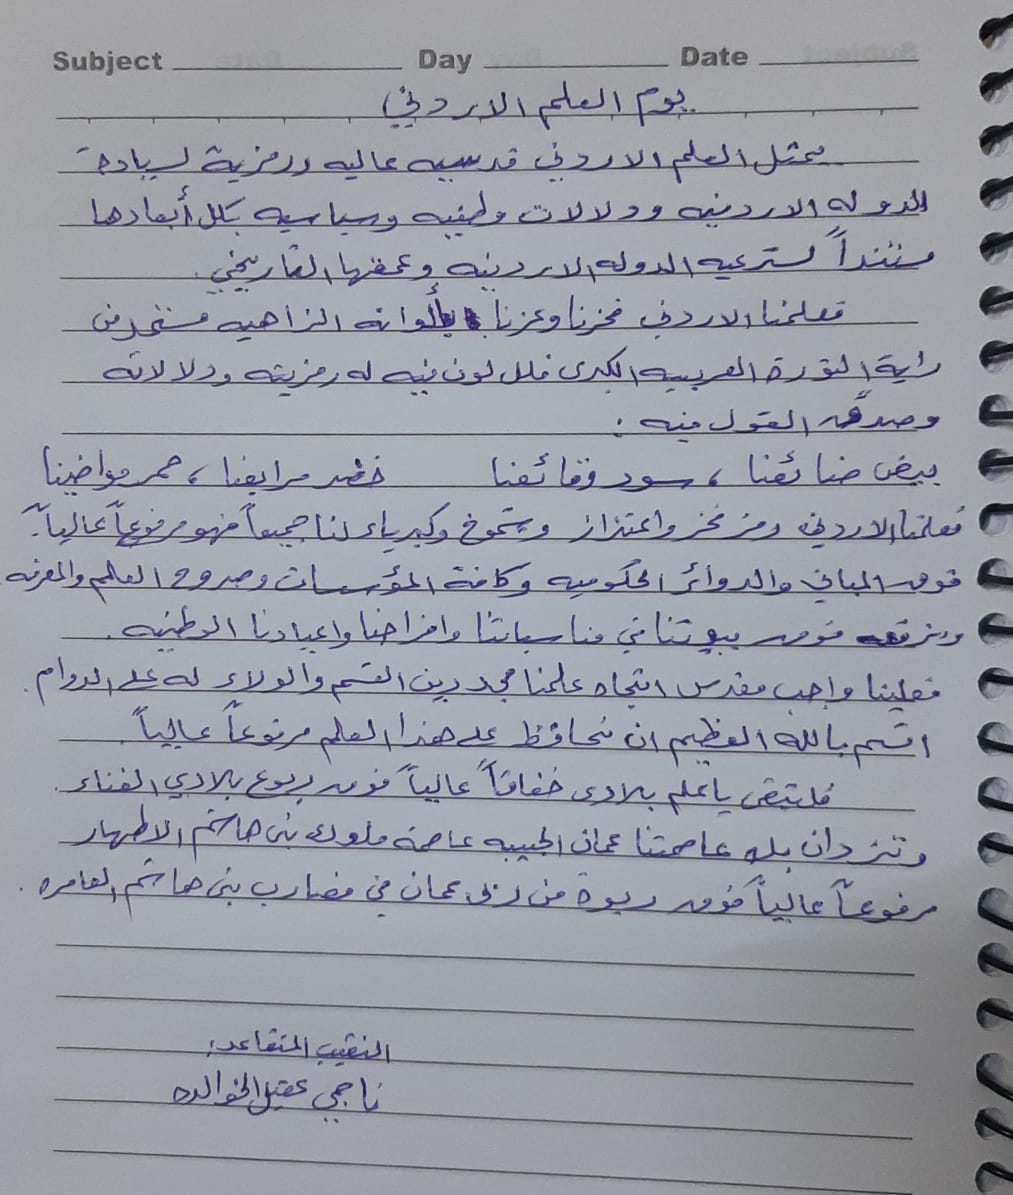 Subject Day Date
يوم العلم الاردني
يمثل العلم الاردني قدسيه عاليه ورمزية لسيادة
الدوله الاردنيه ودلالات وطنيه وسياسيه بكل أبعادها
مستنداً لشرعيه الدوله الاردنيه وعمقها التاريخي.
فعلمنا الاردني فخرنا وعزنا بألوانه الزاهيه مستمد من
راية الثورة العربيه الكبرى فلل لون فيه له رمزيته ودلالاته
وصدق القول فيه :
بيض صنائعنا ، سود وقائعنا خضر مرابعنا ، حمر مواضينا
فعلمنا الاردني رمز فخر واعتزاز وشموخ وكبرياء لنا جميعاً فهو مرفوعاً عالياً
فوق المباني والدوائر الحكوميه وكافة المؤسسات وصروح العلم والمعرفه
ونرفعه فوق بيوتنا في مناسباتنا وافراحنا واعيادنا الوطنيه .
فعلينا واجب مقدس اتجاه علمنا مجددين القسم والولاء له على الدوام .
اقسم بالله العظيم ان نحافظ على هذا العلم مرفوعاً عالياً .
فلتبقى يا علم بلادي خفاقاً عالياً فوق ربوع بلادي الغناء .
وتزدان بك عاصمتنا عمان الحبيبه عاصمة ملوك بني هاشم الاطهار
مرفوعاً عالياً فوق ربوة من ربى عمان في مضارب بني هاشم العامره .
النقيب المتقاعد :
ناجي عقيل الخوالده